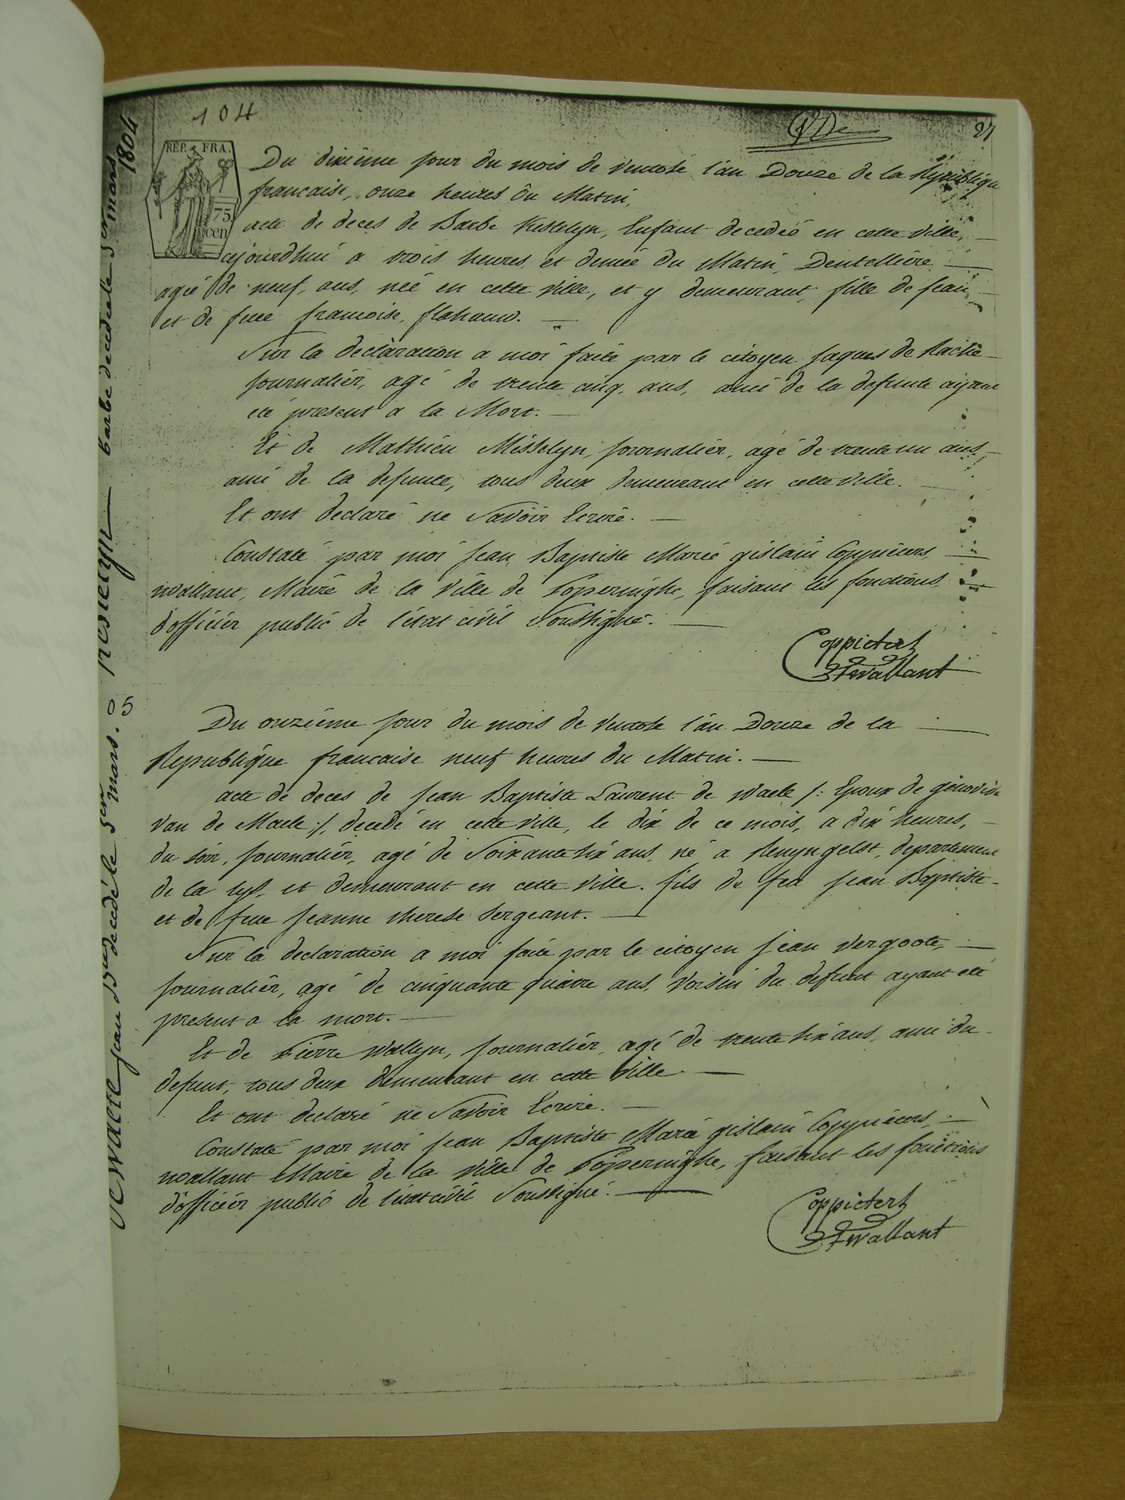 104
27
REP. FRA.
75
cen
1804
Du dixième jour du mois de ventose l'an Douze de la République
francaise, onze heures du Matin,
acte de deces de Barbe Kestelyn, Enfant decedéé en cette ville,
ajourdhui a trois heures et demie du Matin, Dentellière
ageé de neuf ans, néé en cette ville, et y demeurant, fille de jean
et de feue francoise flahauw.
Sur la declaration a moi faite par le citoyen jaques de
journalier, agé de trente cinq ans, ami de la defunte aiyant
été present a la Mort.
Et de Mathieu Misselyn, journalier, agé de trente un ans,
ami de la defunte, tous deux demeurant en cette ville.
Et ont declaré ne Savoir Ecrire.
Constaté par moi jean Baptiste Marie gislain Coppieters
wallant, Maire de la Ville de Poperinghe, faisant les fonctions
d'officier public de l'état civil Soussigné.
Coppieters
Twallant
Kestelyn barbe decedée le mars
05
Du onzième jour du mois de Ventose l'an Douze de la
Republique francaise neuf heures du Matin.
acte de deces de jean Baptiste Laurent de Waele /: Epoux de
van de Maele :/, decedé en cette ville, le dix de ce mois, a dix heures,
du soir, journalier, agé de Soixante six ans, né a Renyngelst, departement
de la lys, et demeurant en cette ville. fils de feu jean Baptiste
et de feue jeanne therese Sergeant.
Sur la declaration a moi faite par le citoyen jean Vergoote,
journalier, agé de cinquante quatre ans, Voisin du defunt ayant été
present a la mort.
Et de Pierre Wallyn, journalier, agé de trente six ans, ami du
defunt, tous deux demeurant en cette Ville.
Et ont declaré ne Savoir Ecrire.
Constaté par moi jean Baptiste Marie gislain Coppieters
wallant Maire de la Ville de Poperinghe, faisant les fonctions
d'officier public de l'état civil Soussigné.
Coppieters
Twallant
De Waele jean decedé le mars.